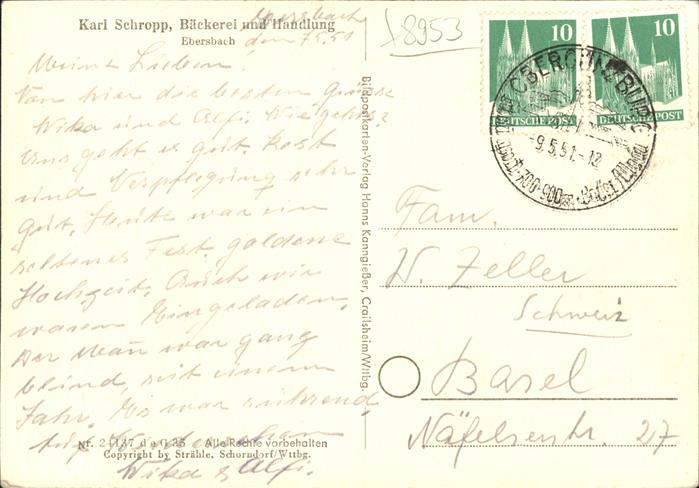 Karl Schropp, Bäckerei und Handlung
Ebersbach
Ebersbach
den 7.5.51
Meine Lieben!
Von hier die besten Grüsse
Wika und Alfi. Wie geht's?
Uns geht es gut. Kost
und Verpflegung sehr
gut. Heute war ein
seltenes Fest. goldene
Hochzeit. Auch wir
waren Eingeladen.
Der Mann war ganz
blind, seit einem
Jahr. Es war rührend
Wika & Alfi.
Nr. 24137 de G 35 Alle Rechte vorbehalten
Copyright by Strähle, Schorndorf/Wttbg.
Bildpostkarten-Verlag Hanns Kanngießer, Crailsheim/Wttbg.
18953
10
10
DEUTSCHE POST
DEUTSCHE POST
OBERGÜNZBURG
-9.5.51.-12
700-900m
Fam.
W. Zeller
Schweiz
Basel
Näfelserstr. 27